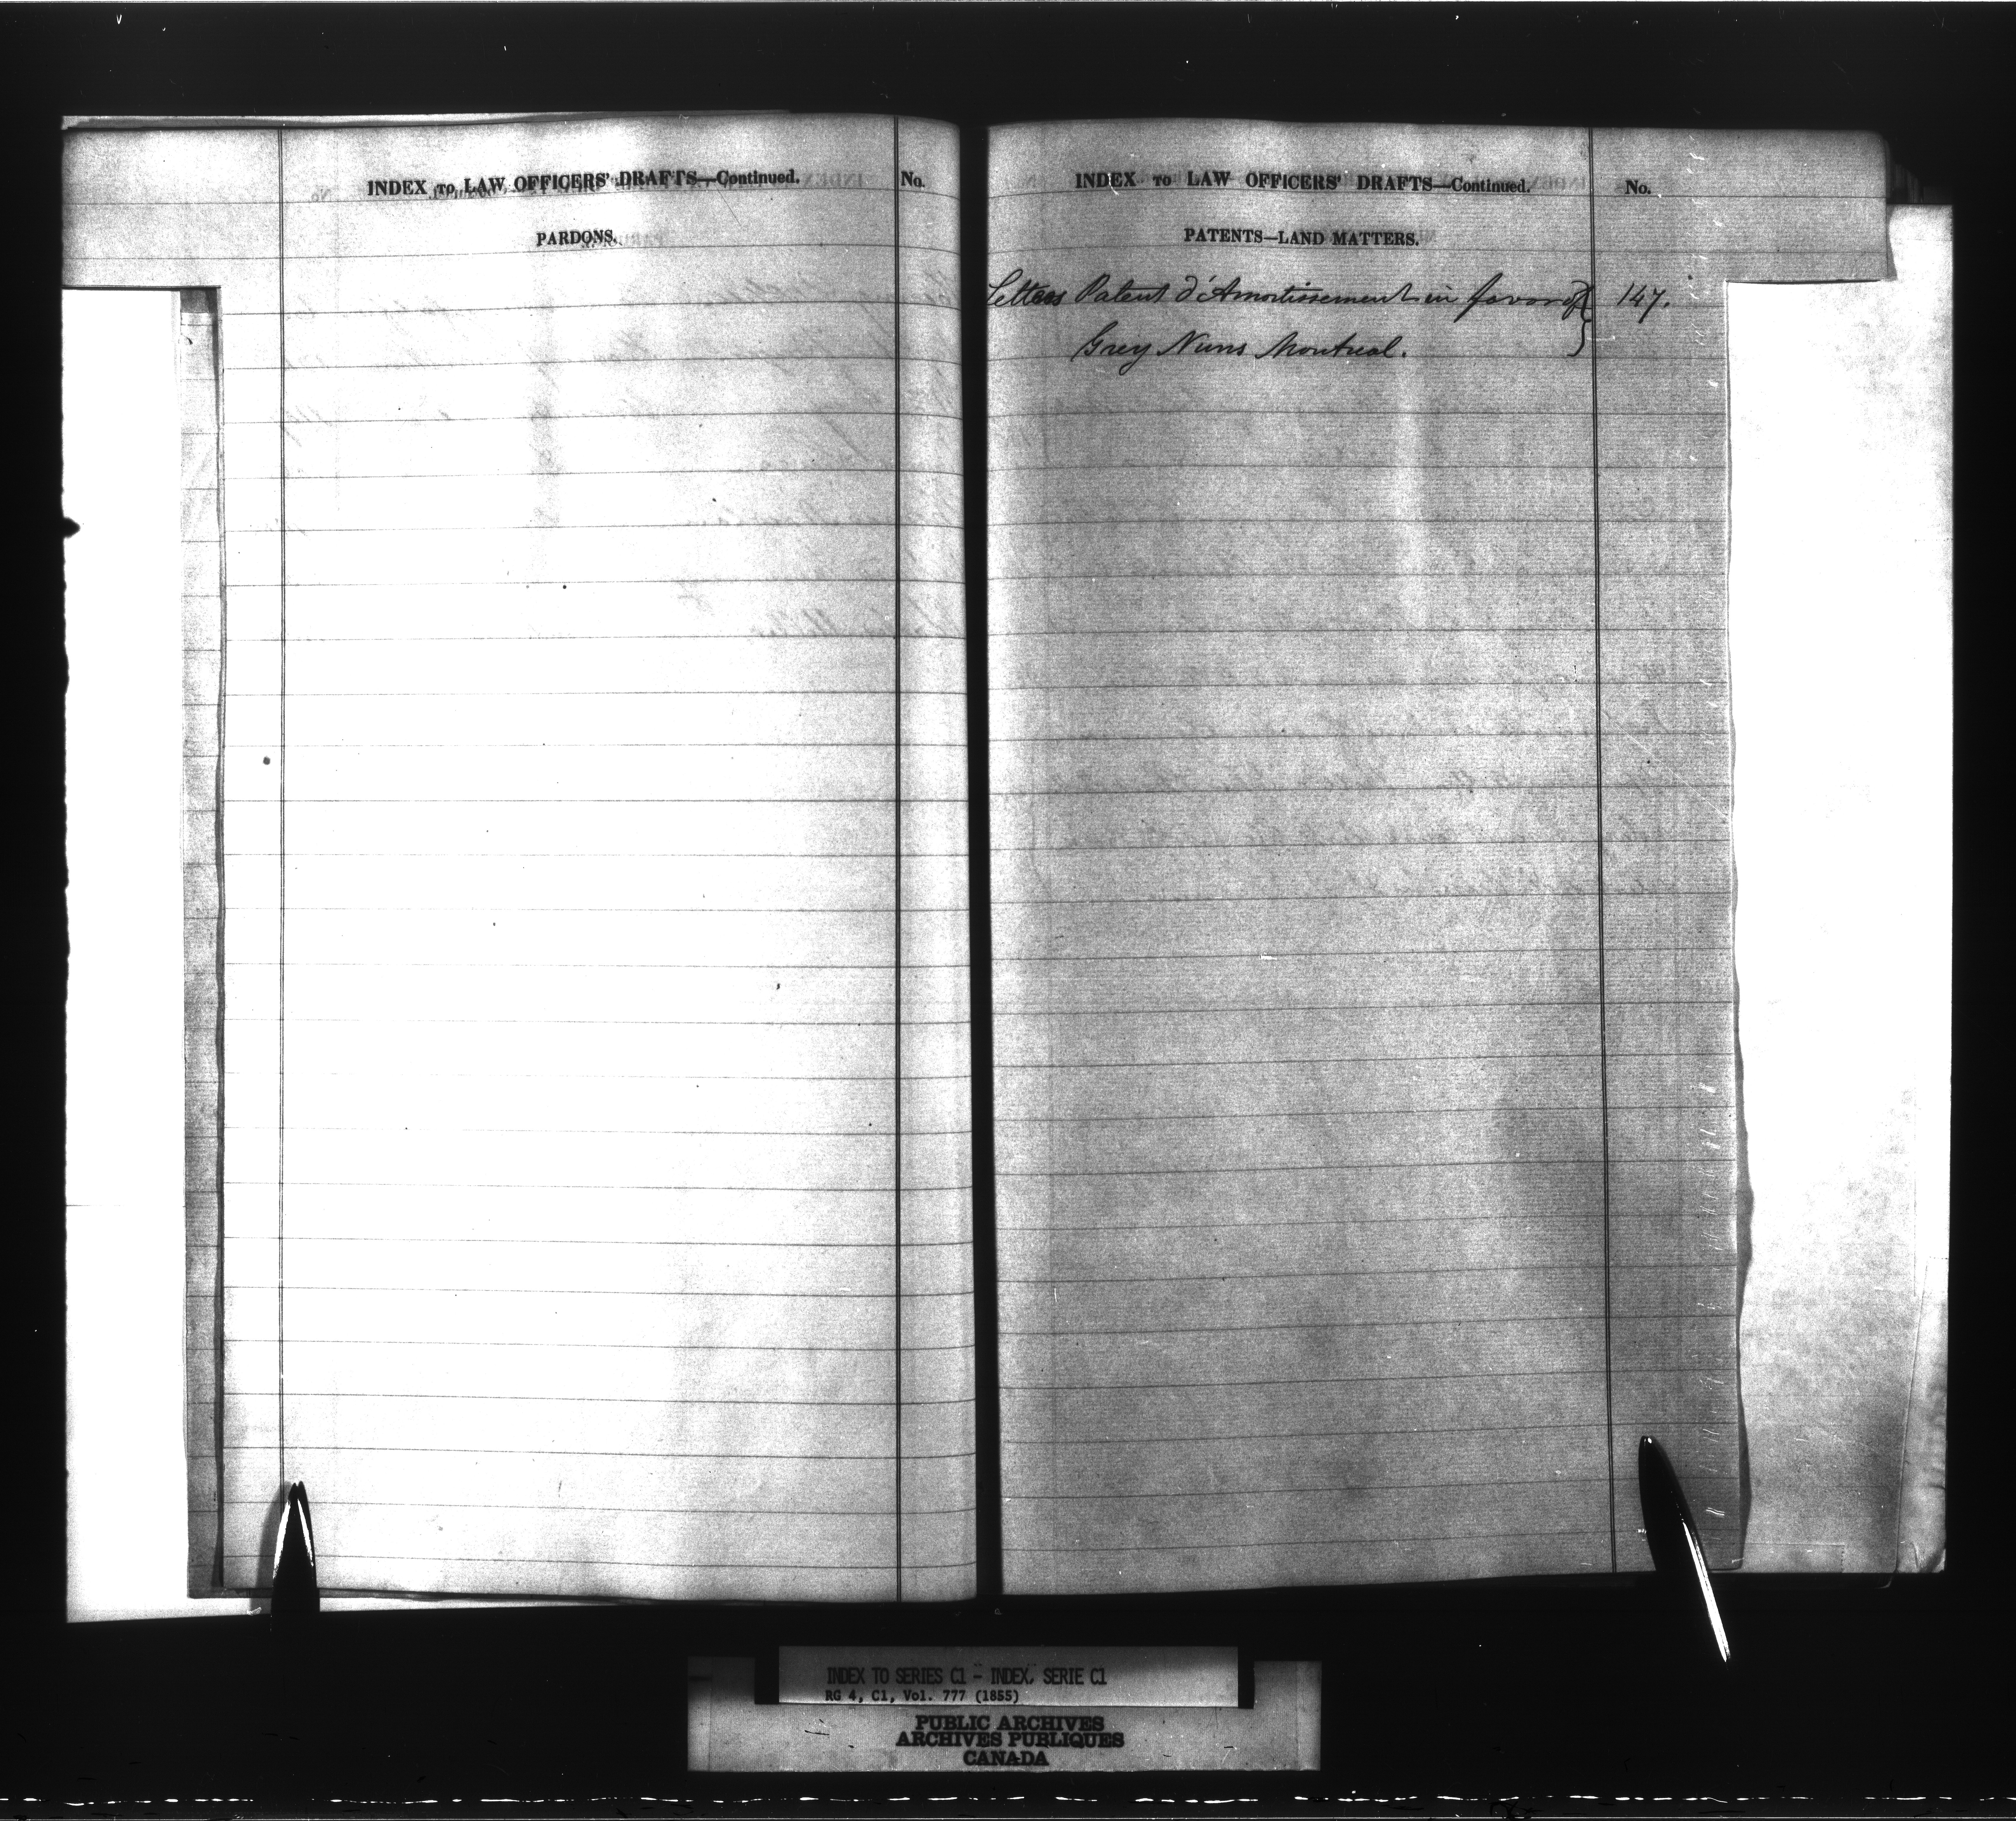 INDEX TO LAW OFFICERS' DRAFTS—Continued.
No.
PARDONS.
INDEX TO LAW OFFICERS' DRAFTS—Continued.
No.
PATENTS—LAND MATTERS.
Letters Patent d'Amortissement in favor of 147.
Grey Nuns Montreal.
INDEX TO SERIES C1 - INDEX, SERIE C1
RG 4, C1, Vol. 777 (1855)
PUBLIC ARCHIVES
ARCHIVES PUBLIQUES
CANADA